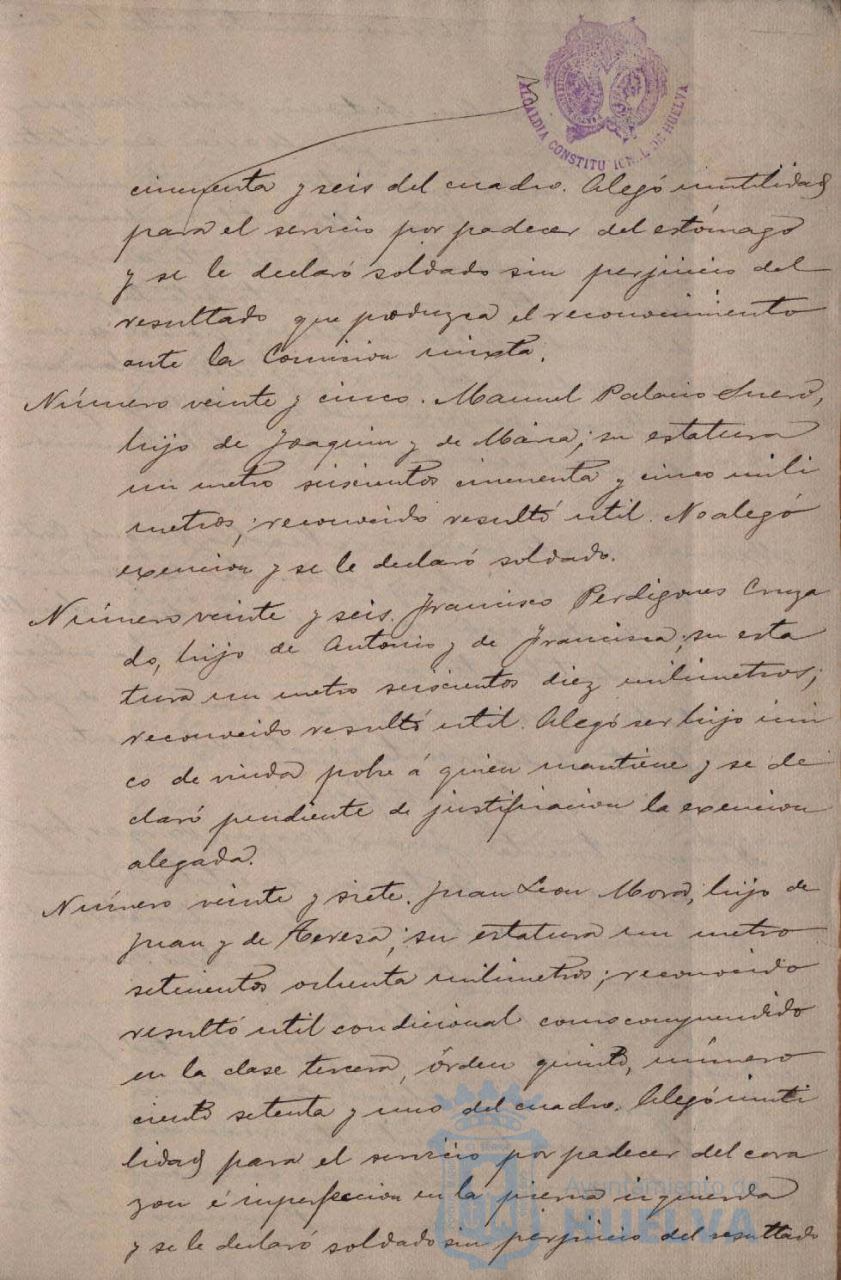 ALCALDIA CONSTITUCIONAL DE HUELVA
cincuenta y seis del cuadro. Alegó inutilidad
para el servicio por padecer del estómago
y se le declaró soldado sin perjuicio del
resultado que produzca el reconocimiento
ante la Comision mixta.
Número veinte y cinco. Manuel Palacio Suero,
hijo de Joaquin y de Maria; su estatura
un metro seiscientos cincuenta y cinco mili
metros; reconocido resultó util. No alegó
exencion y se le declaró soldado.
Número veinte y seis. Francisco Perdigones Cruza
do, hijo de Antonio y de Francisca; su esta
tura un metro seiscientos diez milimetros;
reconocido resultó util. Alegó ser hijo uni
co de viuda pobre á quien mantiene y se de
claró pendiente de justificacion la exencion
alegada.
Número veinte y siete. Juan Leon Mora, hijo de
Juan y de Teresa; su estatura un metro
setecientos ochenta milimetros; reconocido
resultó util condicional como comprendido
en la clase tercera, órden quinto, número
ciento setenta y uno del cuadro. Alegó inuti
lidad para el servicio por padecer del cora
zon é imperfeccion en la pierna izquierda
y se le declaró soldado sin perjuicio del resultado
Ayuntamiento de
HUELVA